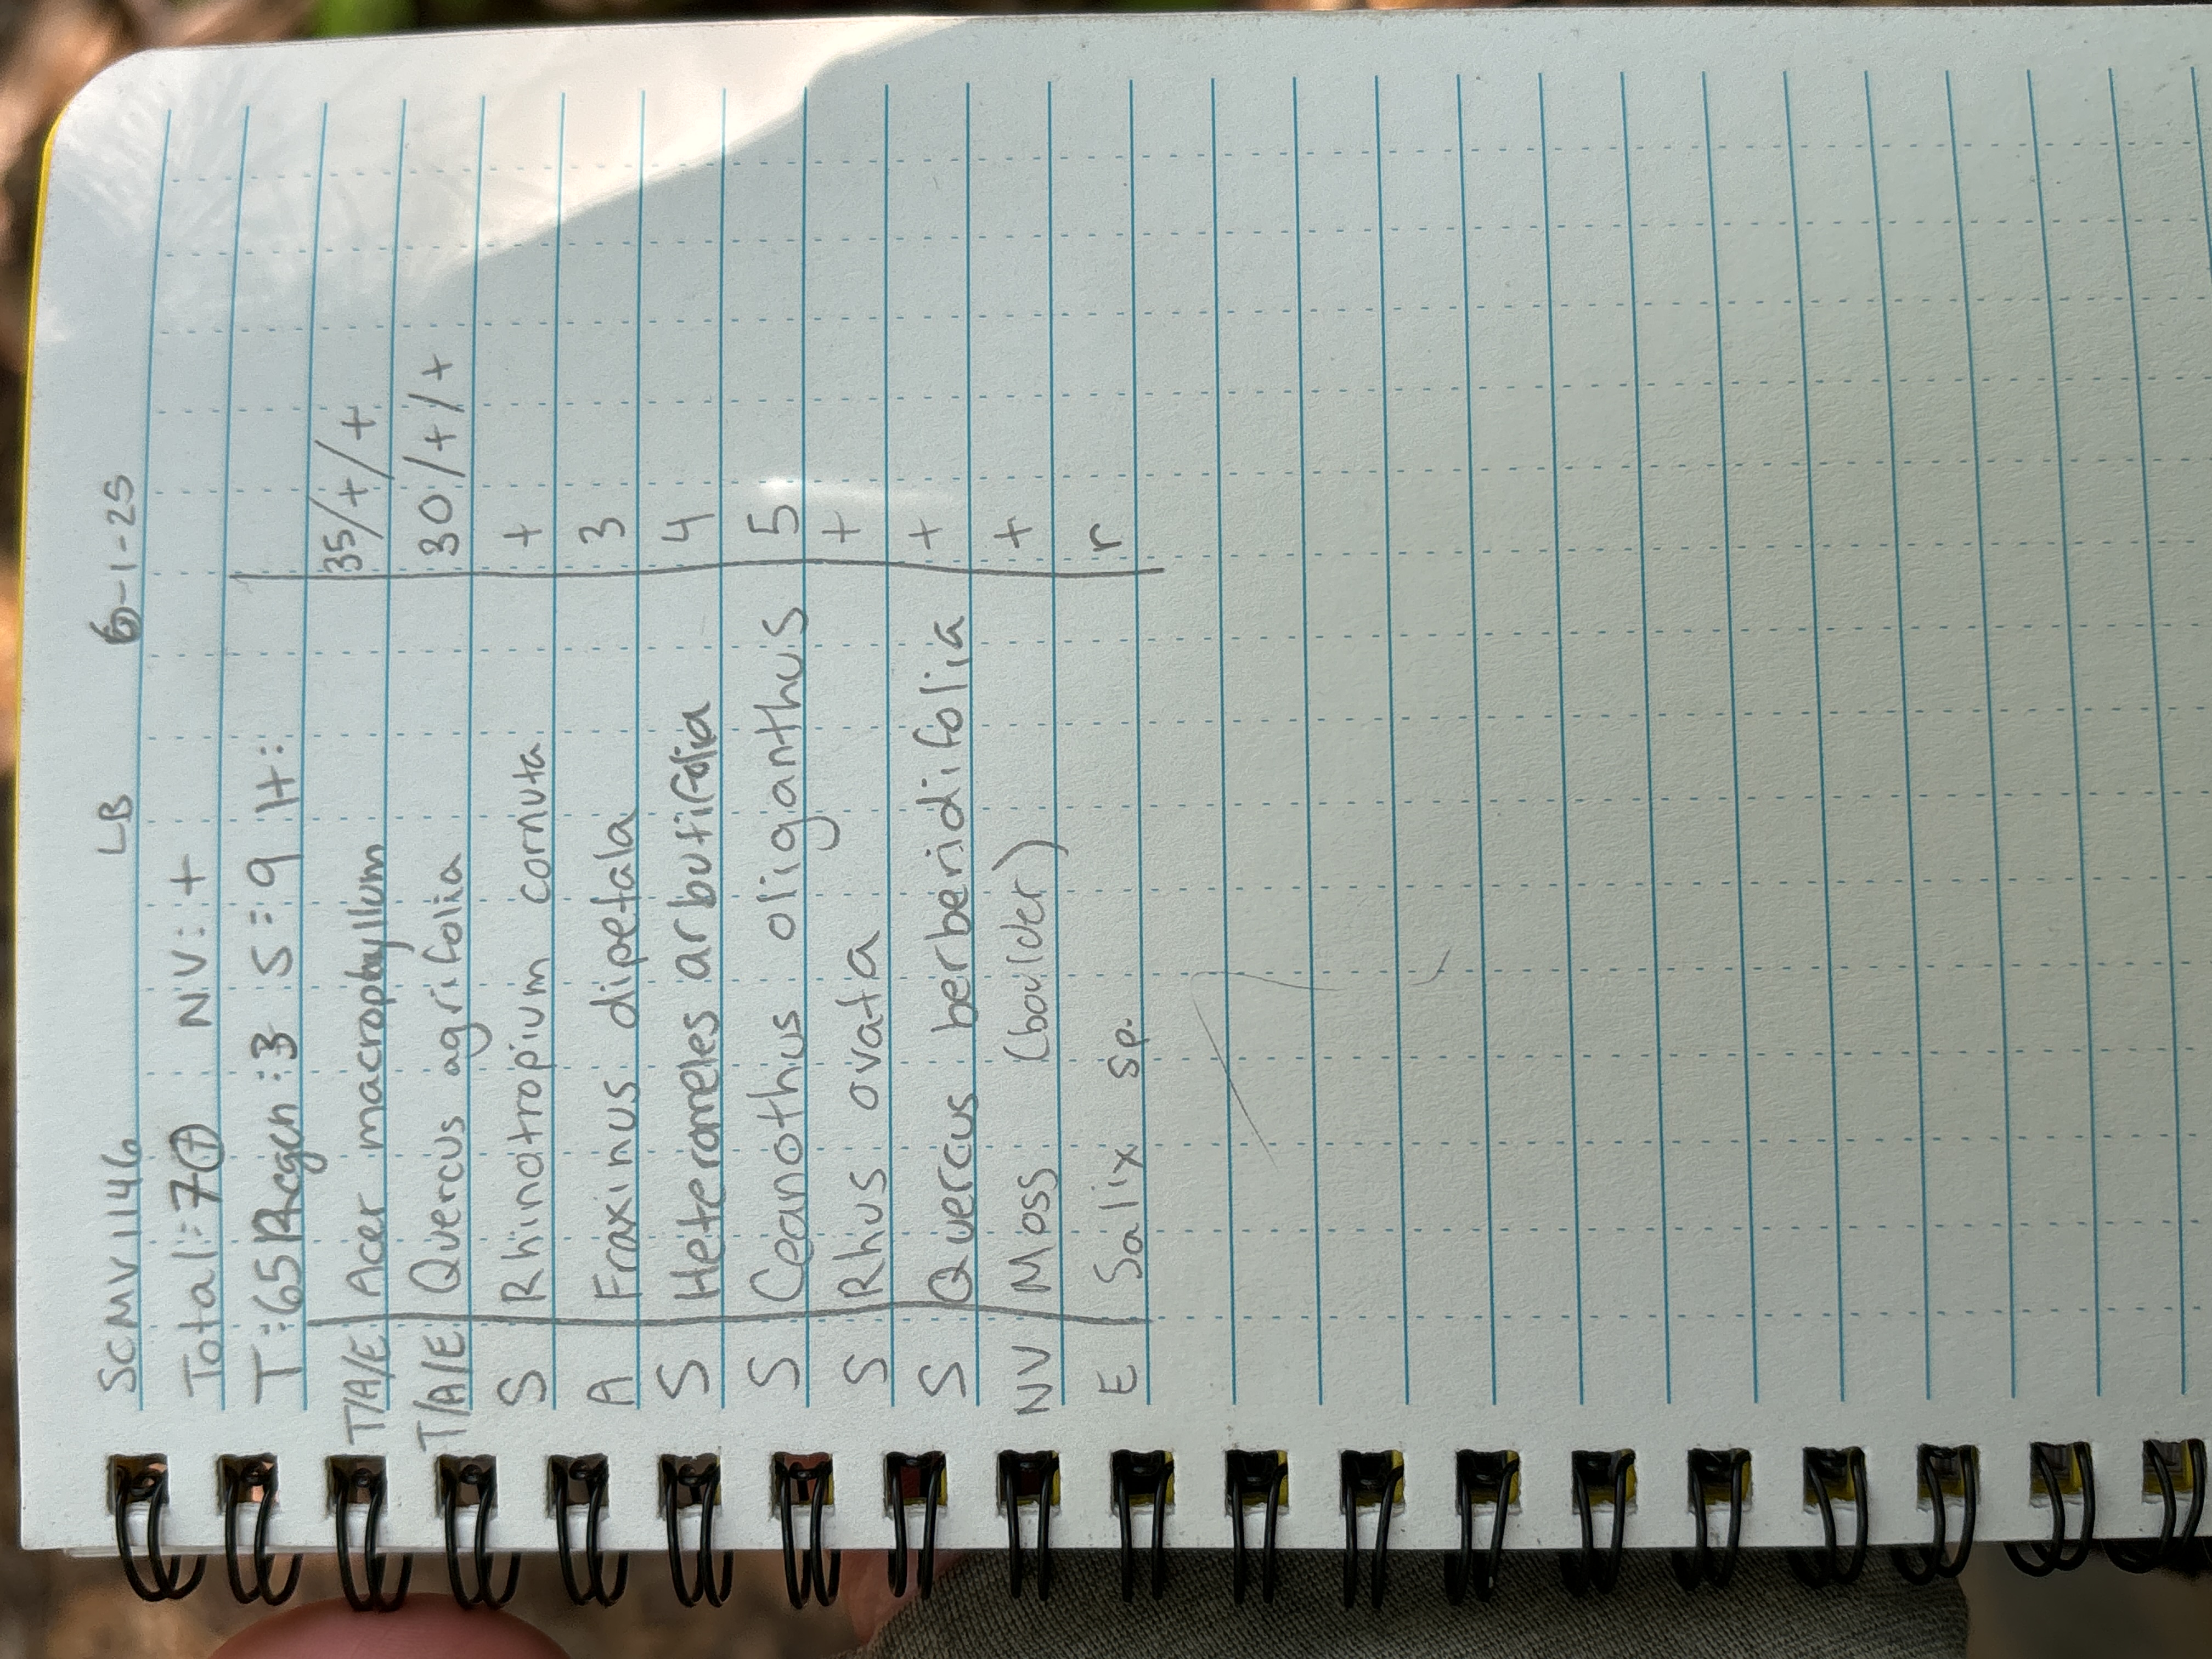 SCMV1146 LB 6-1-25
Total: 7 NV: +
T:65 Regen:3 S:9 H:
T/A/E Acer macrophyllum 35/+/+
T/A/E Quercus agrifolia 30/+/+
S Rhinotropium cornuta +
A Fraxinus dipetala 3
S Heteromeles arbutifolia 4
S Ceanothus oliganthus 5
S Rhus ovata +
S Quercus berberidifolia +
NV Moss (boulder) +
E Salix sp. r